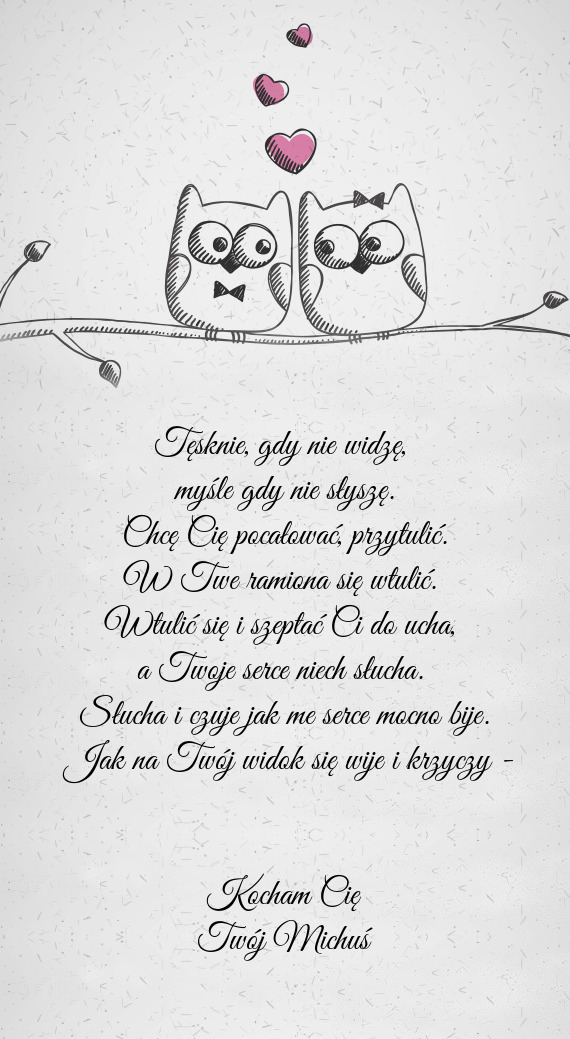 Tęsknie, gdy nie widzę,
myśle gdy nie słyszę.
Chcę Cię pocałować, przytulić.
W Twe ramiona się wtulić.
Wtulić się i szeptać Ci do ucha,
a Twoje serce niech słucha.
Słucha i czuje jak me serce mocno bije.
Jak na Twój widok się wije i krzyczy -
Kocham Cię
Twój Michuś